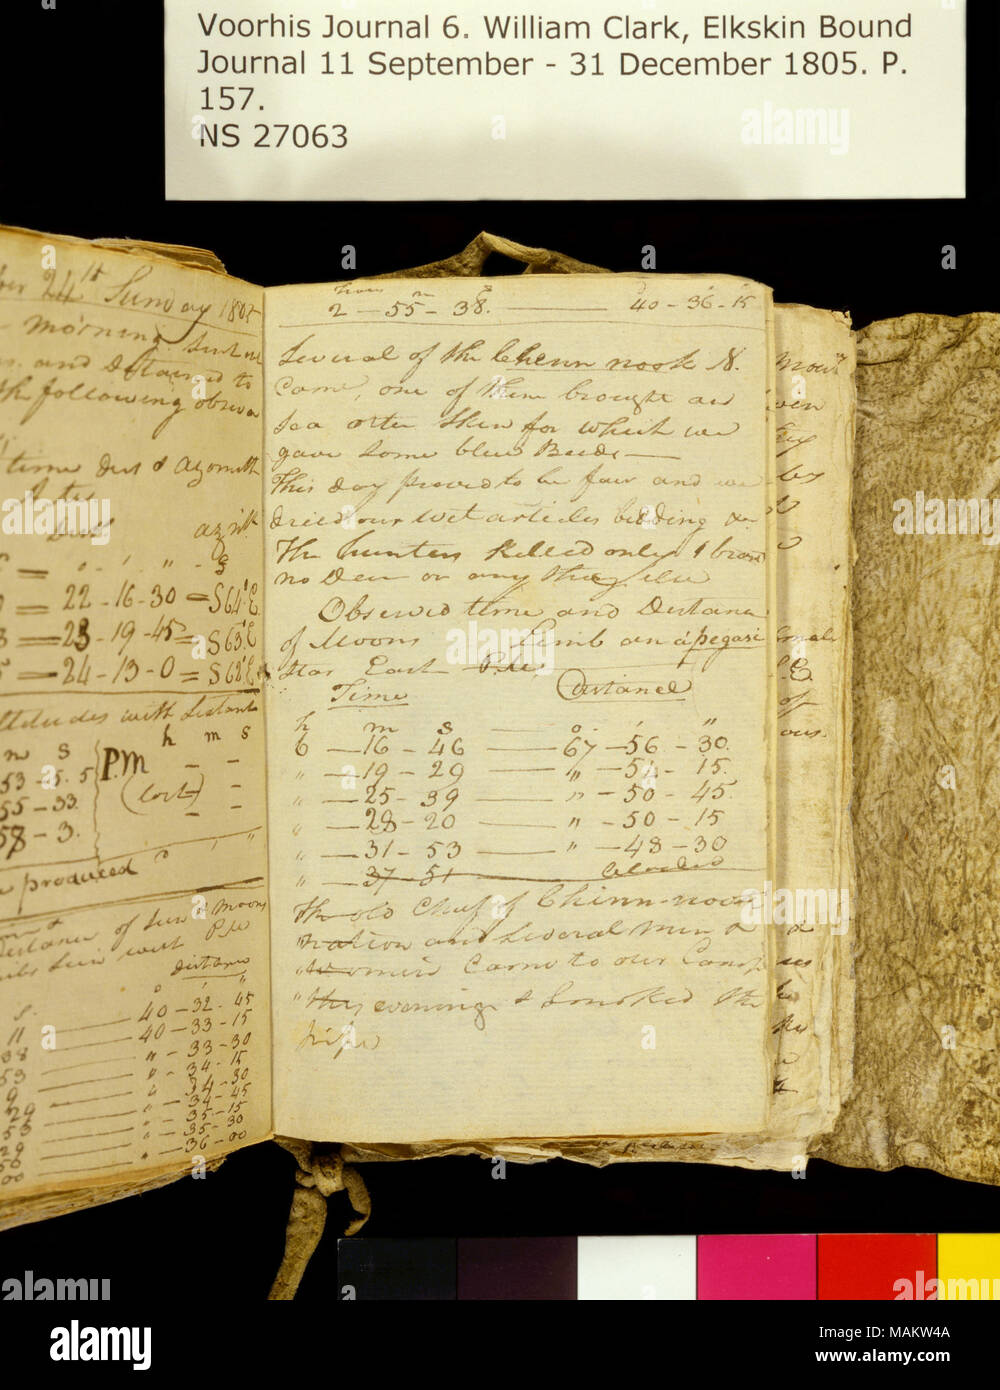 Voorhis Journal 6. William Clark, Elkskin Bound
Journal 11 September - 31 December 1805. P.
157.
NS 27063
24th Sunday 1805
morning
and detained to
the following obser
time dist & azomuth
azmth
= 22 - 16 - 30 = S 64° E.
= 23 - 19 - 45 = S 63° E
= 24 - 13 - 0 = S 62° E
altitudes with distants
m s h m s
53 - 5. 5 P.M - -
55 - 33. (lost) -
58 - 3. -
produced ° ' "
distance of Sun & Moons
West P.M
distance
s. ° ' "
11 — 40 - 32 - 45
38 — 40 - 33 - 15
53 — " - 33 - 30
9 — " - 34 - 15
29 — " - 34 - 30
53 — " - 34 - 45
— " - 35 - 15
— " - 35 - 30
— " - 36 - 00
hours m s
2 — 55 - 38. — 40 - 36 - 15
Several of the Chenn nook N.
Came, one of them brought a
Sea otter Skin for which we
gave Some blue Beeds —
This day proved to be fair and we
dried our wet articles bedding &c
The hunters Killed only 1 brant
no Deer or any thing else
Observed time and Distance
of Moons Limb an á pegasi
Star East P.M
Time Distance
h m s ° ' "
6 — 16 - 46 — 67 - 56 - 30.
" — 19 - 29 — " - 51 - 15.
" — 25 - 39 — " - 50 - 45.
" — 28 - 20 — " - 50 - 15
" — 31 - 53 — " - 48 - 30
" — 37 - 51 clouded
The old Chief of Chinn-nook
nation and Several Men &
women Came to our Camp
this evening & Smoked the
pipe
alamy
Image ID: MAKW4A
www.alamy.com